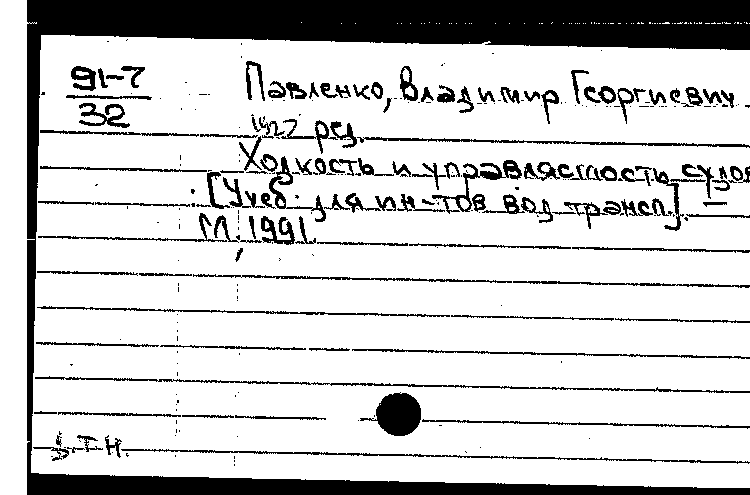 91-7
32
Павленко, Владимир Георгиевич
1927 рез.
Ходкость и управляемость судов
[Учеб. для ин-тов вод трансп]. —
М., 1991.
Т.Н.